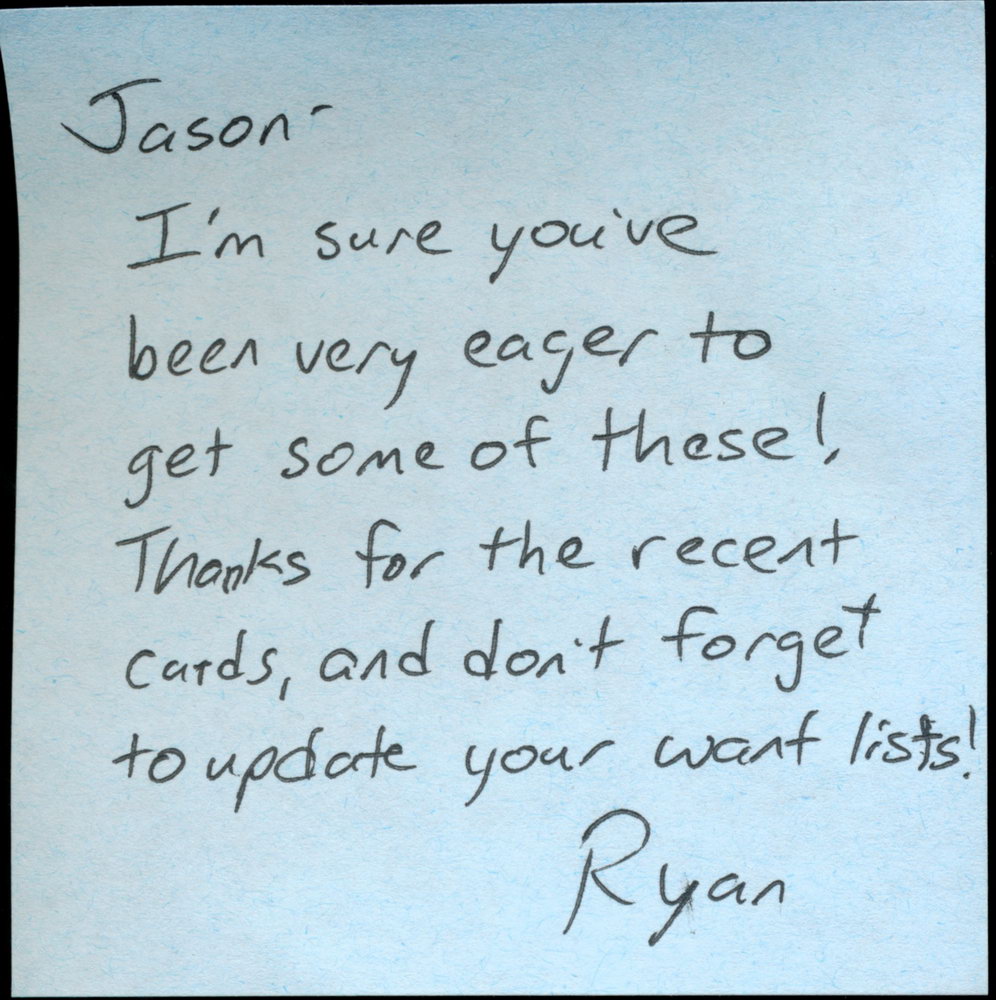 Jason-
I'm sure you've
been very eager to
get some of these!
Thanks for the recent
cards, and don't forget
to update your want lists!
Ryan